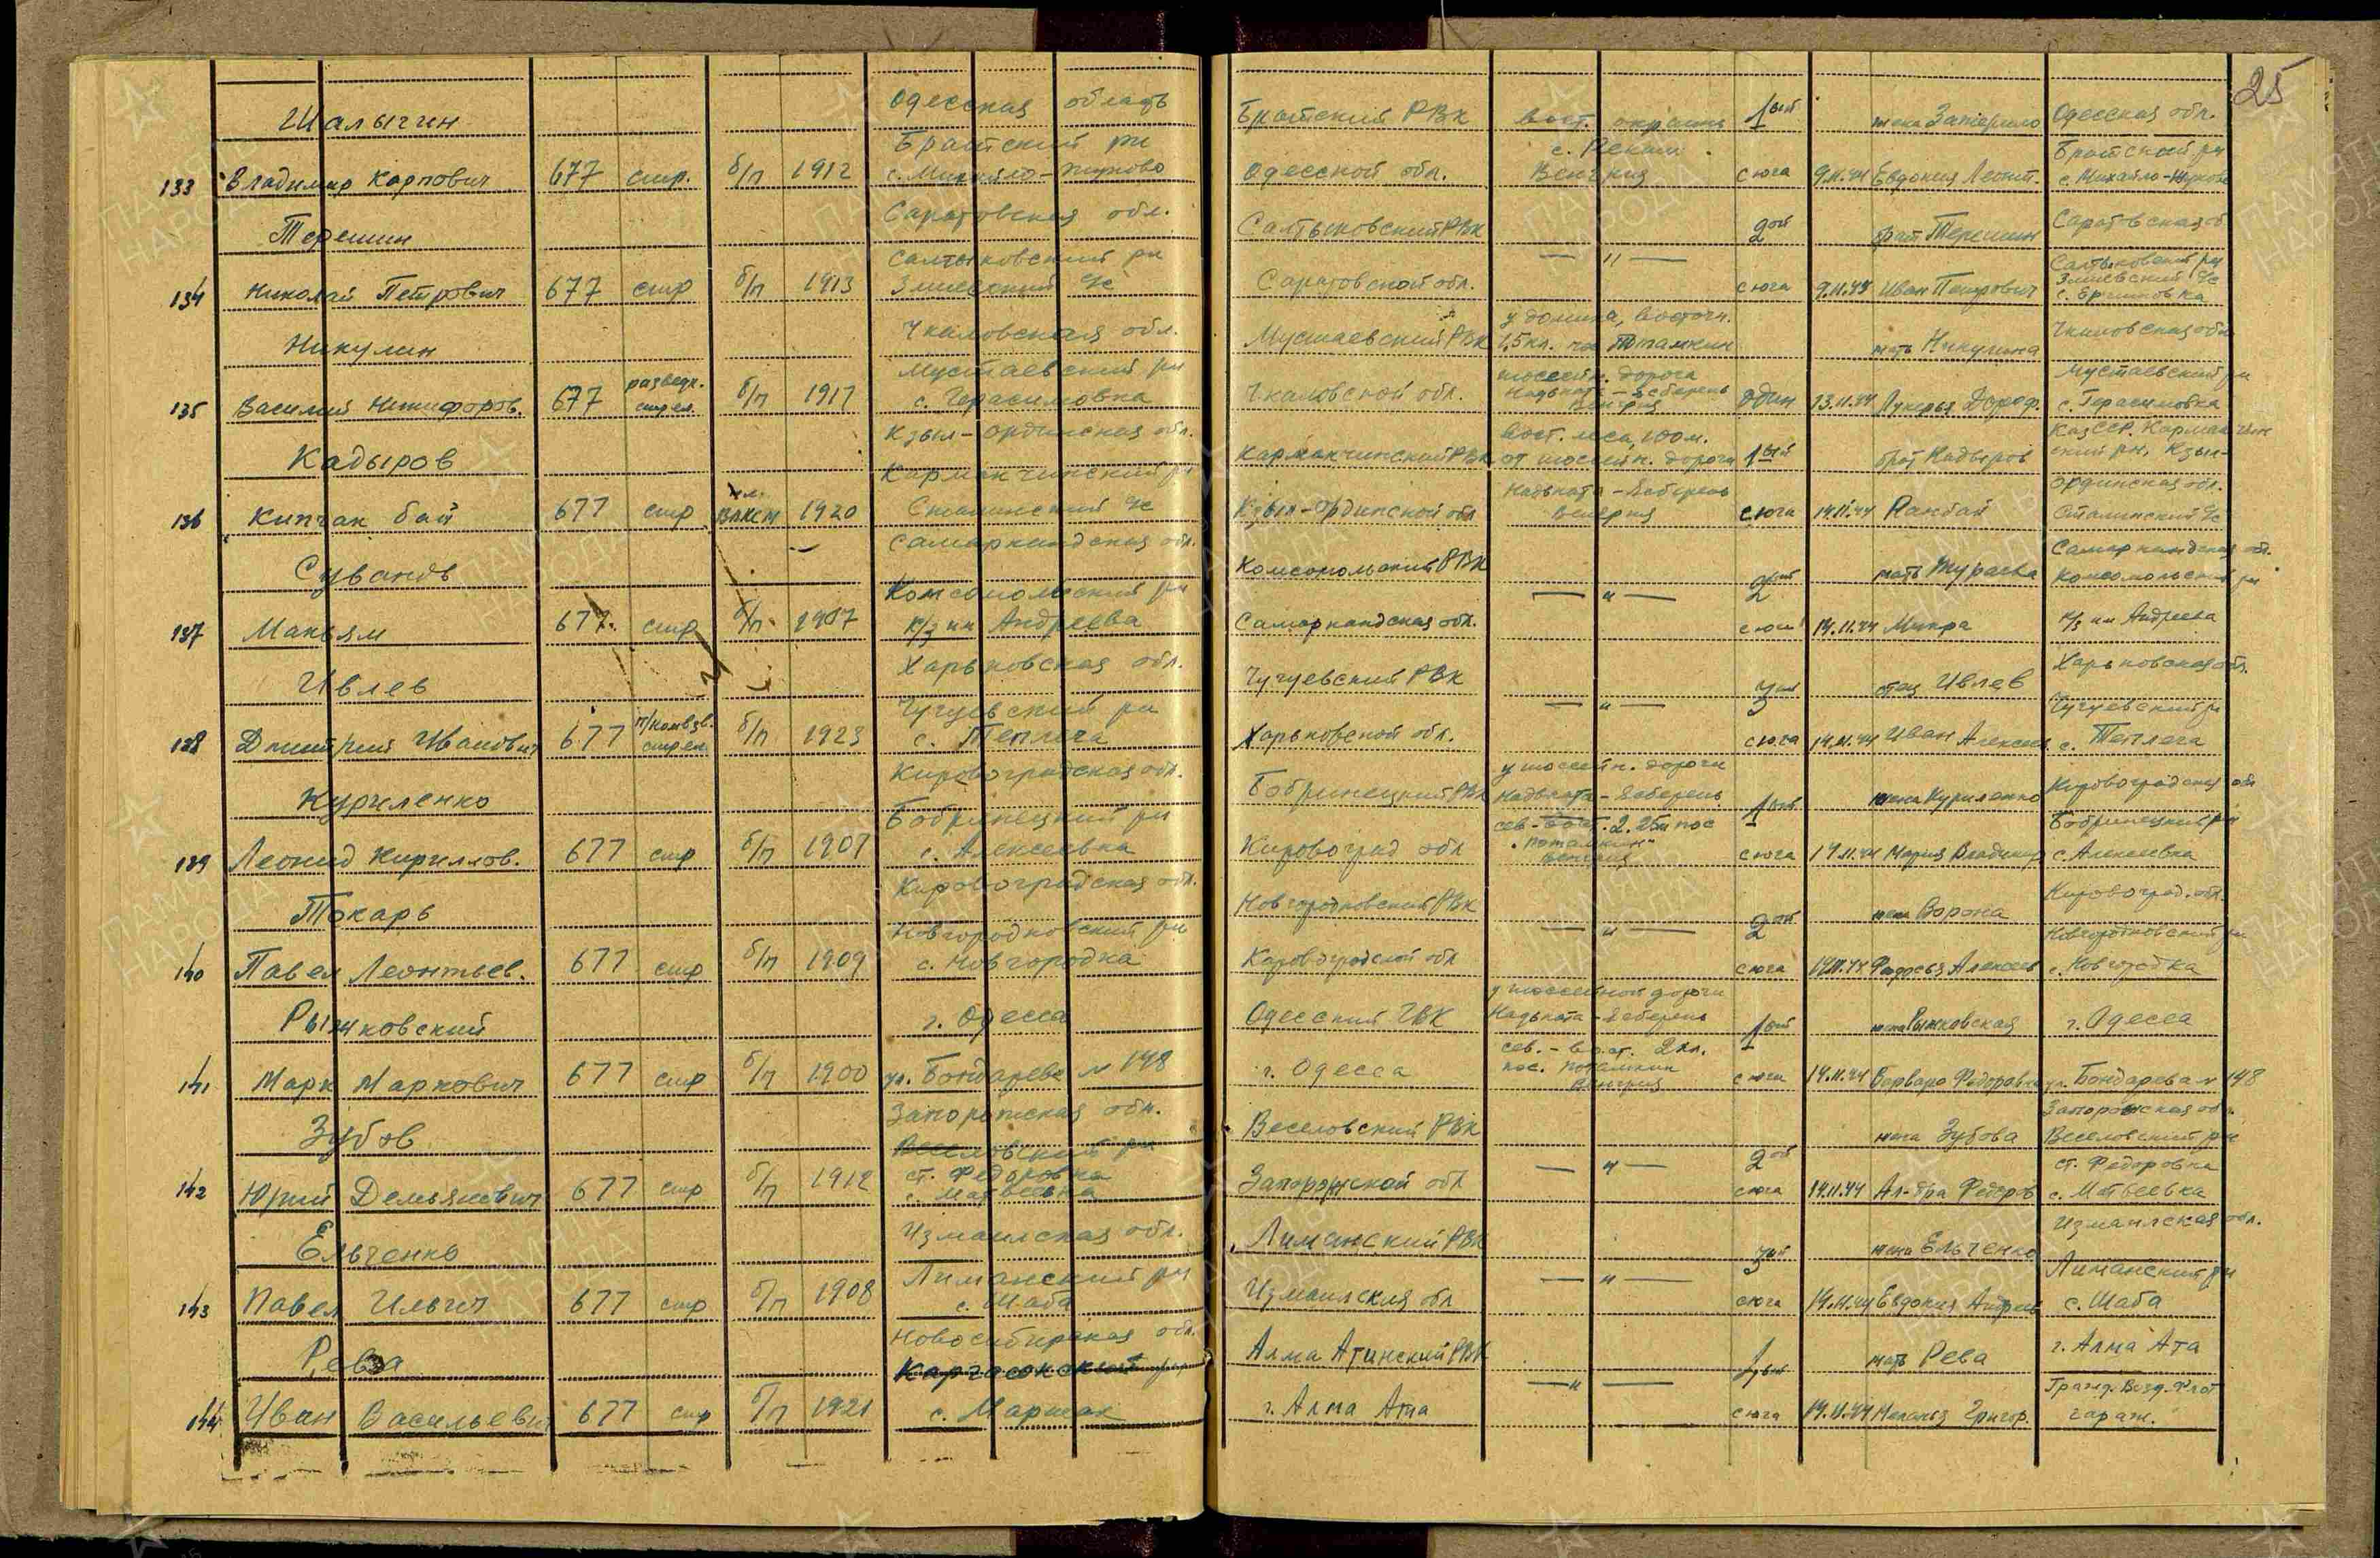 25
Шалыгин
133 Владимир Карпович 677 стр. б/п 1912
Одесская область
Братский рн
с. Михайло-Жуково
Братский РВК
Одесской обл.
вост. окраина
с.
Венгрия
1ый
с юга 9.11.44
жена
Евдокия Леонт.
Одесская обл.
Братский рн
с. Михайло-Жуково
Терешин
134 Николай Петрович 677 стр б/п 1913
Саратовская обл.
Салтыковский рн
Змиевский с/с
Салтыковский РВК
Саратовской обл.
— " —
2ой
с юга 9.11.44
брат Терешин
Иван Петрович
Саратовская об
Салтыковский рн
Змиевский с/с
Никулин
135 Василий Никифоров. 677 разведч. стрел. б/п 1917
Чкаловская обл.
Мустаевский рн
с. Герасимовка
Мустаевский РВК
Чкаловской обл.
у домика, восточн.
1,5 кл. пос Потамкин
шоссейн. дорога
Надьката - Себерень
Венгрия
один 13.11.44
мать Никулина
Лукерья Дороф.
Чкаловская обл
Мустаевский рн
с. Герасимовка
Кадыров
136 Кипчак бай 677 стр чл. ВЛКСМ 1920
Кзыл-ординская обл.
Кармакчинский рн
Сталинский с/с
Кармакчинский РВК
Кзыл-Ординской обл
вост. леса, 100 м.
от шоссейн. дороги
Надьката - Себерень
Венгрия
1ый
с юга 14.11.44
брат Кадыров
Ранбай
Каз ССР. Кармакчин
ский рн, Кзыл-
ординская обл.
Сталинский с/с
Сувандв
137 Маньям 677 стр б/п 1907
Самаркандская обл.
Комсомольский рн
к/з им Андреева
Комсомольский РВК
Самаркандская обл.
— " —
2ой
с юга 14.11.44
мать Тураева
Самаркандская об.
Комсомольский рн
к/з им Андреева
Ивлев
138 Дмитрий Иванович 677 п/комвзв. стрел б/п 1923
Харьковская обл.
Чугуевский рн
с. Теплега
Чугуевский РВК
Харьковской обл.
— " —
3ий
с юга 14.11.44
отец Ивлев
Иван Алексеев.
Харьковская обл.
Чугуевский рн
с. Теплега
Куриленко
139 Леонид Кириллов. 677 стр б/п 1907
Кировоградская обл.
Бобринецкий рн
с. Алексеевка
Бобринецкий РВК
Кировоград обл
у шоссейн. дороги
Надьката - Себерень
сев-вост. 2.25 м пос
"Потамкин"
Венгрия
1ый
с юга 14.11.44
жена Куриленко
Мария Владимир
Кировоградская обл
Бобринецкий рн
с. Алексеевка
Токарь
140 Павел Леонтьев. 677 стр б/п 1909
Кировоградская обл.
Новгородковский рн
с. Новгородка
Новгородковский РВК
Кировоградской обл
— " —
2ой
с юга 14.11.44
жена Ворона
Федосья Алексеев
Кировоград. обл.
Новгородковский рн
с. Новгородка
Рыжковский
141 Марк Маркович 677 стр б/п 1900
г. Одесса
ул. Бондарева № 148
Одесский ГВК
г. Одесса
у шоссейной дороги
Надьката - Себерень
сев. - вост. 2 кл.
пос. Потамкин
Венгрия
1ый
с юга 14.11.44
жена Рыжковская
Варвара Федоровна
г. Одесса
ул. Бондарева № 148
Зубов
142 Юрий Демьянович 677 стр б/п 1912
Запорожская обл.
Веселовский рн
ст. Федоровка
с. Матвеевка
Веселовский РВК
Запорожской обл
— " —
2ой
с юга 14.11.44
жена Зубова
Ал-дра Федоров
Запорожская обл.
Веселовский рн
ст. Федоровка
с. Матвеевка
Ельченко
143 Павел Ильич 677 стр б/п 1908
Измаилская обл.
Лиманский рн
с. Шаба
Лиманский РВК
Измаилския обл
— " —
3ий
с юга 14.11.44
жена Ельченко
Евдокия Андреев
Измаилская обл.
Лиманский рн
с. Шаба
Рева
144 Иван Васильевич 677 стр б/п 1921
Новосибирская обл.
Каргасокский рн
с. Маршак
Алма Атинский РВК
г. Алма Ата
— " —
1ый
с юга 14.11.44
мать Рева
Меланья Григор.
г. Алма Ата
Гражд. Возд. Флот
гараж.